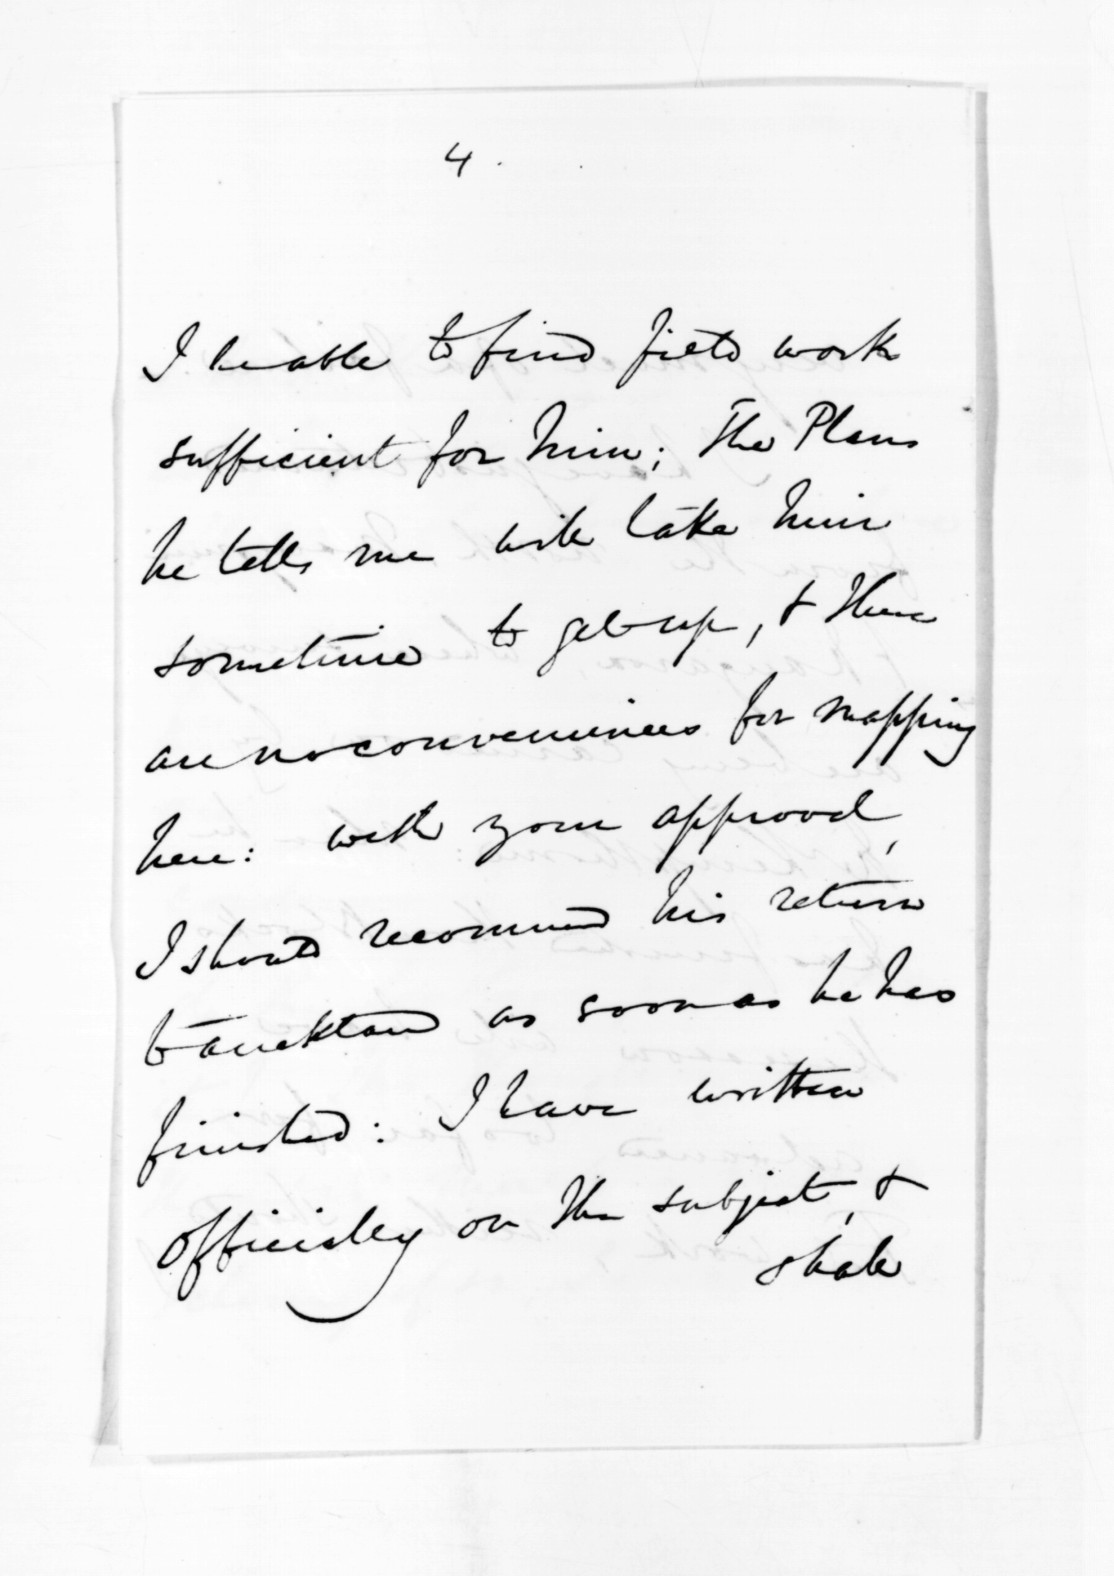 4.
I be able to find field work
sufficient for him; The Plans
he tells me will take him
sometime to get up, & there
are no conveniences for mapping
here: with your approval,
I should recommend his return
to Auckland as soon as he has
finished: I have written
officially on the subject, &
shall